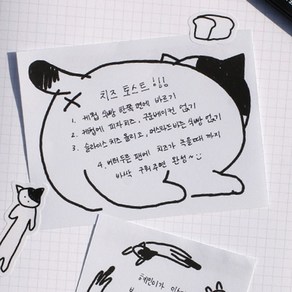 치즈 토스트 !!!
1. 케첩 식빵 한쪽 면에 바르기
2. 케첩에 피자치즈, 구운베이컨 얹기
3. 슬라이스 치즈 올리고, 머스타드바른 식빵 얹기
4. 버터두른 팬에 치즈가 녹을때 까지
바삭 구워주면 완성~